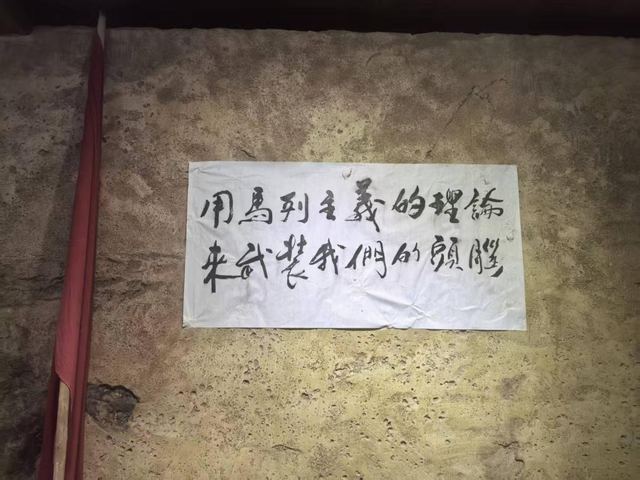 用馬列主義的理論
来武裝我們的頭腦